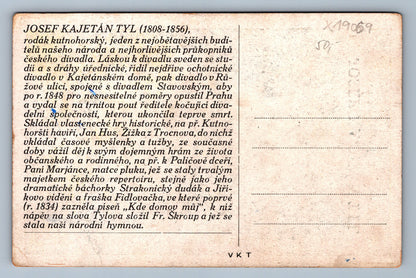 JOSEF KAJETÁN TYL (1808-1856),
rodák kutnohorský, jeden z nejobětavějších budi-
telů našeho národa a nejhorlivějších průkopníků
českého divadla. Láskou k divadlu sveden se stu-
dií a s dráhy úřednické, řídil nejdříve ochotnické
divadlo v Kajetánském domě, pak divadlo v Rů-
žové ulici, spojené s divadlem Stavovským, aby
po r. 1848 pro nesnesitelné poměry opustil Prahu
a vydal se na trnitou pouť ředitele kočující diva-
delní společnosti, kterou ukončila teprve smrt.
Skládal vlastenecké hry historické, na př. Kutno-
horští havíři, Jan Hus, Žižka z Trocnova, do nichž
vkládal časové myšlenky a tužby, ze současné
doby vážil děj k svým dojemným hrám ze života
občanského a rodinného, na př. k Paličově dceři,
Paní Marjánce, matce pluku, jež se staly trvalým
majetkem českého repertoiru, stejně jako jeho
dramatické báchorky Strakonický dudák a Jiří-
kovo vidění a fraška Fidlovačka, ve které poprvé
(r. 1834) zazněla píseň „Kde domov můj“, k níž
nápěv na slova Tylova složil Fr. Škroup a jež se
stala naší národní hymnou.
VKT
X19069
50,